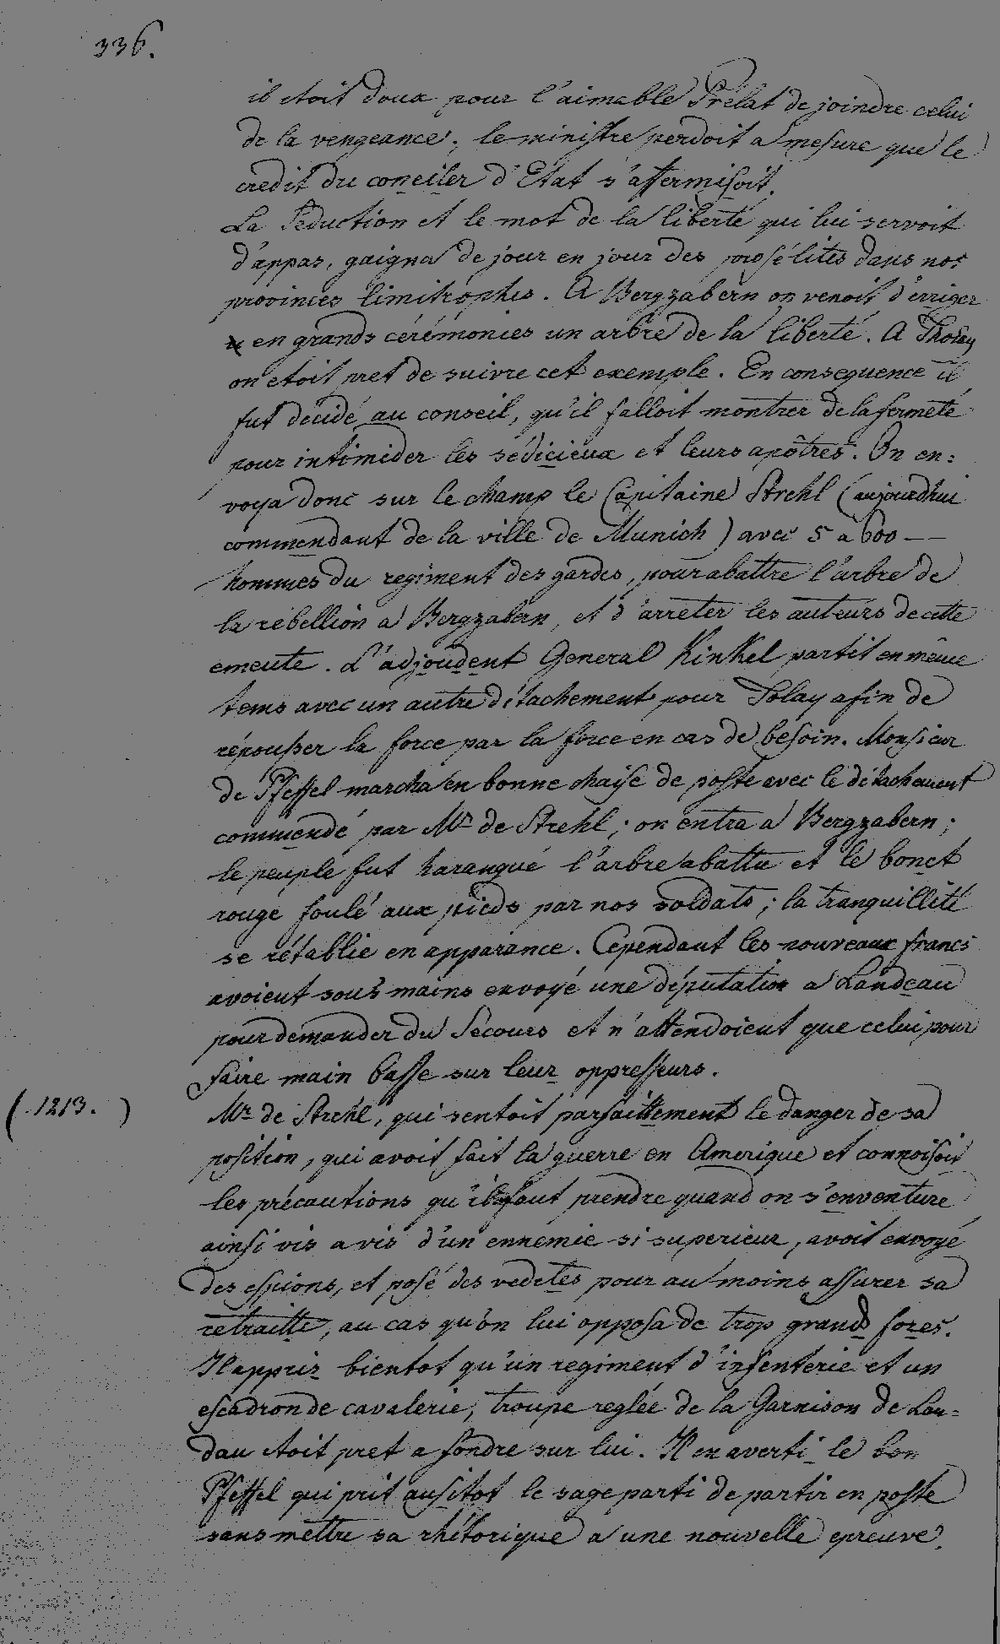 336.
il etoit doux pour l'aimable Prélat de joindre celui
de la vengeance. le ministre perdoit a mesure que le
credit du conciler d'Etat s'affermisoit.
La Séduction et le mot de la liberté qui lui servoit
d'appas, gaigna de jour en jour des prosélites dans nos
provinces limitrophes. A Bergzabern on venoit d'erriger
en grands cérémonies un arbre de la liberté. A Tholay
on etoit pret de suivre cet exemple. En consequence il
fut décidé au conseil, qu'il falloit montrer de la fermeté
pour intimider les sédicieux et leurs apôtres. On en=
voya donc sur le champ le Capitaine Strehl (aujourdhui
commendant de la ville de Munich) avec 5 a 600 —
hommes du regiment des gardes, pour abattre l'arbre de
la rébellion a Bergzabern, et d'arreter les auteurs de cette
emeute. L'adjoudent General Kinkel partit en même
tems avec un autre détachement pour Tolay afin de
répousser la force par la force en cas de besoin. Monsieur
de Pfeffel marcha en bonne chaise de poste avec le détachement
commendé par Mr de Strehl; on entra a Bergzabern;
le peuple fut harangué l'arbre abattu et le bonet
rouge foulé aux pieds par nos soldats; la tranquillité
se rétablie en apparance. Cependant les nouveaux francs
avoient sous mains envoyé une députation a Landeau
pour demander du Sécours et n'attendoient que celui pour
faire main basse sur leur oppresseurs.
(1213.)
Mr de Strehl, qui sentoit parfaittement le danger de sa
position, qui avoit fait la guerre en Amerique et connoisoit
les précautions qu'il faut prendre quand on s'enventure
ainsi vis a vis d'un ennemie si superieur, avoit envoyé
des espions, et posé des vedetes pour au moins assurer sa
retraitte, au cas qu'on lui opposa de trop grands fores.
Il apprit bientot qu'un regiment d'infenterie et un
escadron de cavalerie, troupe reglée de la Garnison de Lan=
dau etoit pret a fondre sur lui. Il en averti le bon
Pfeffel qui prit ausitot le sage parti de partir en poste
sans mettre sa rhétorique a une nouvelle epreuve.